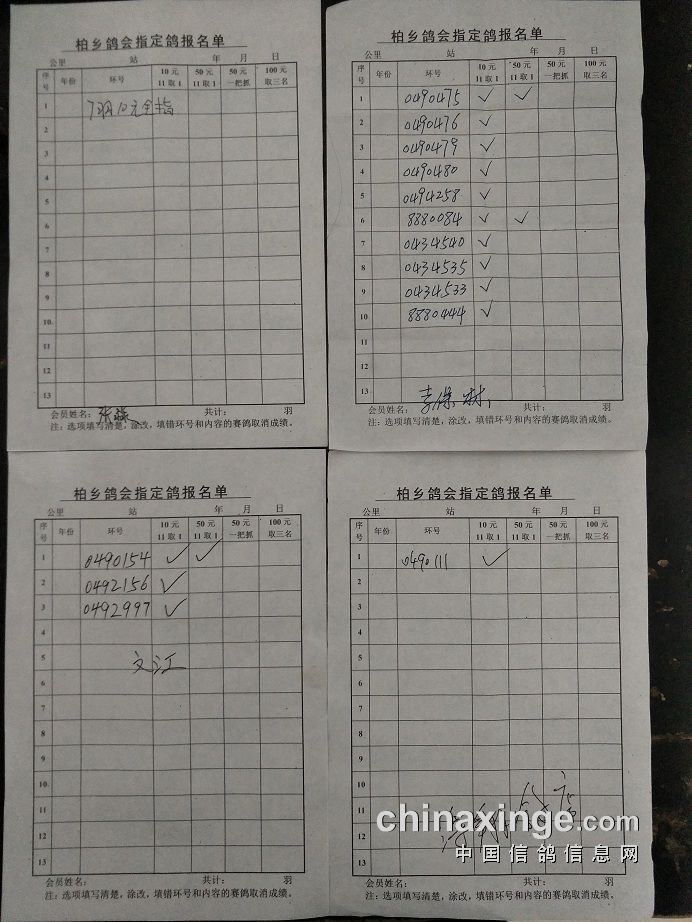 柏乡鸽会指定鸽报名单
公里 站 年 月 日
序号 年份 环号 10元11取1 50元11取1 50元一把抓 100元取三名
1 7羽10元全指
2
3
4
5
6
7
8
9
10
11
12
13
会员姓名： 张 共计： 羽
注：选项填写清楚，涂改，填错环号和内容的赛鸽取消成绩。
柏乡鸽会指定鸽报名单
公里 站 年 月 日
序号 年份 环号 10元11取1 50元11取1 50元一把抓 100元取三名
1 0490475 ✓ ✓
2 0490476 ✓
3 0490479 ✓
4 0490480 ✓
5 0494258 ✓
6 8880084 ✓ ✓
7 0434540 ✓
8 0434535 ✓
9 0434533 ✓
10 8880444 ✓
11
12
13
会员姓名： 李保林 共计： 羽
注：选项填写清楚，涂改，填错环号和内容的赛鸽取消成绩。
柏乡鸽会指定鸽报名单
公里 站 年 月 日
序号 年份 环号 10元11取1 50元11取1 50元一把抓 100元取三名
1 0490154 ✓ ✓
2 0492156 ✓
3 0492997 ✓
4
5 文江
6
7
8
9
10
11
12
13
会员姓名： 共计： 羽
注：选项填写清楚，涂改，填错环号和内容的赛鸽取消成绩。
柏乡鸽会指定鸽报名单
公里 站 年 月 日
序号 年份 环号 10元11取1 50元11取1 50元一把抓 100元取三名
1 0490111 ✓
2
3
4
5
6
7
8
9
10
11
12
13
会员姓名： 共计： 羽
注：选项填写清楚，涂改，填错环号和内容的赛鸽取消成绩。
chinaxinge.com
中国信鸽信息网